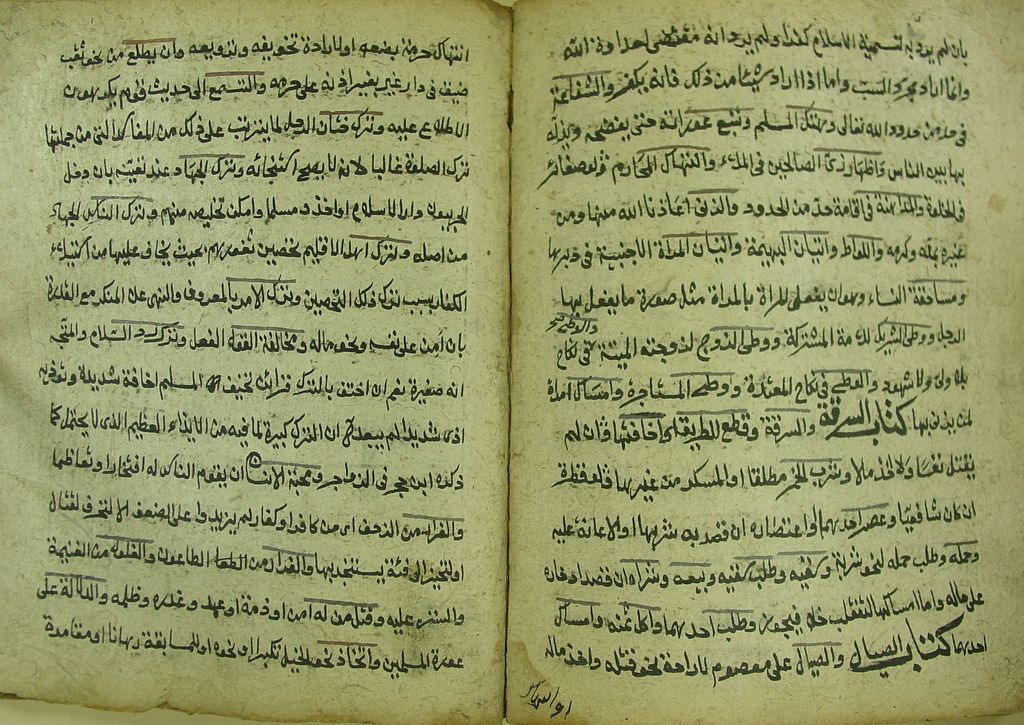 بان لم يرد به تسمية الاسلام كفرا ولم يرد انه مقتضى احداوة الله
وانما اراد مجرد السب واما اذا اراد شيئا من ذلك فانه يكفر والشفاعة
فى حد من حدود الله تعالى وهتك المسلم وتتبع عوراته حتى يفضحه ويذله
بها بين الناس واظهار زى الصالحين فى الملاء وانتهاك المحارم ولو صغائر
فى الخلوة والمداهنة فى اقامة حد من الحدود والزنى اعاذنا الله منها ومن
غيره بمنه وكرمه واللواط واتيان البهيمة واتيان المرأة الاجنبية فى دبرها
ومساحقة النساء وهو ان يفعل المراة بالمراة مثل صورة ما يفعل بها
الرجل ووطى الشريك للامة المشتركة ووطى الزوج لزوجته الميتة فى نكاح
والوطى صح
بلا ولى ولا شهود والوطى فى نكاح المتعة ووطى المستاجرة وامساك امراة
لمن يزنى بها كتاب السرقة والسرقة وقطع الطريق اى اخافتها وان لم
يقتل نفسا ولا اخذ مالا وشرب الخمر مطلقا او المسكر من غيرها ولو قطرة
ان كان شافعيا وعصر احدهما واعتصاره ان قصد به شربها او الاعانة عليه
وحمله وطلب حمله لنحو شربه وسقيه وطلب سقيه وبيعه وشراه ان قصد
على ماله واما امساكها لتتقلب خلا فيجوز وطلب احدهما واكل ثمنه وامساك
احدهما كتاب الصيال والصيال على معصوم لاراحة لنحو قتله واخذ ماله
او انتهاك
انتهاك حرمة بضعه او لارادة تخويفه وترويعه وان يطلع من نحو ثقب
ضيق فى دار غيره بغير اذنه على حرمه والتسمع الى حديث قوم يكرهون
الاطلاع عليه وترك ختان الرجل لما يترتب على ذلك من المفاسد التى من جملتها
ترك الصلوة غالبا لانه لا يصح استنجائه وترك الجهاد عند تعينه بان دخل
الحربيون دار الاسلام او اخذوا مسلما وامكن تخليصه منهم وترك الناس الجهاد
من اصله وترك اهل الاقليم تحصين ثغورهم بحيث يخاف عليها من استيلاء
الكفار بسبب ترك ذلك التحصين وترك الامر بالمعروف والنهى عن المنكر مع القدرة
بان امن على نفسه ونحو ماله ومخالفة القول الفعل وترك رد السلام والمتجه
انه صغيرة نعم ان احتف بالترك قرائن تخيف المسلم اخافة شديدة وتوذيه
اذى شديدا لم يبعد ان الترك كبيرة لما فيه من الايذاء العظيم الذى لا يحتمل كما
ذكره ابن حجر فى الزواجر ومحبة الانسان ان يقوم الناس له افتخارا وتعاظما
والفرار من الزحف اى من كافر او كفار لم يزيدوا على الضعف الا لتحرف لقتال
او لتحيز الى فئة يستنجد بها والفرار من الطاعون والغلول من الغنيمة
والستر عليه وقتل من له امن او ذمة او عهد وغدره وظلمه والدلالة على
عورة المسلمين واتخاذ نحو الخيل تكبرا او نحوه او للمسابقة رهانا او مقامرة